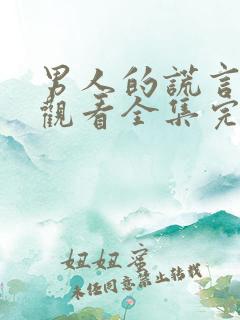 男人的謊言
觀看全集完
妞妞蜜
未经同意禁止转载